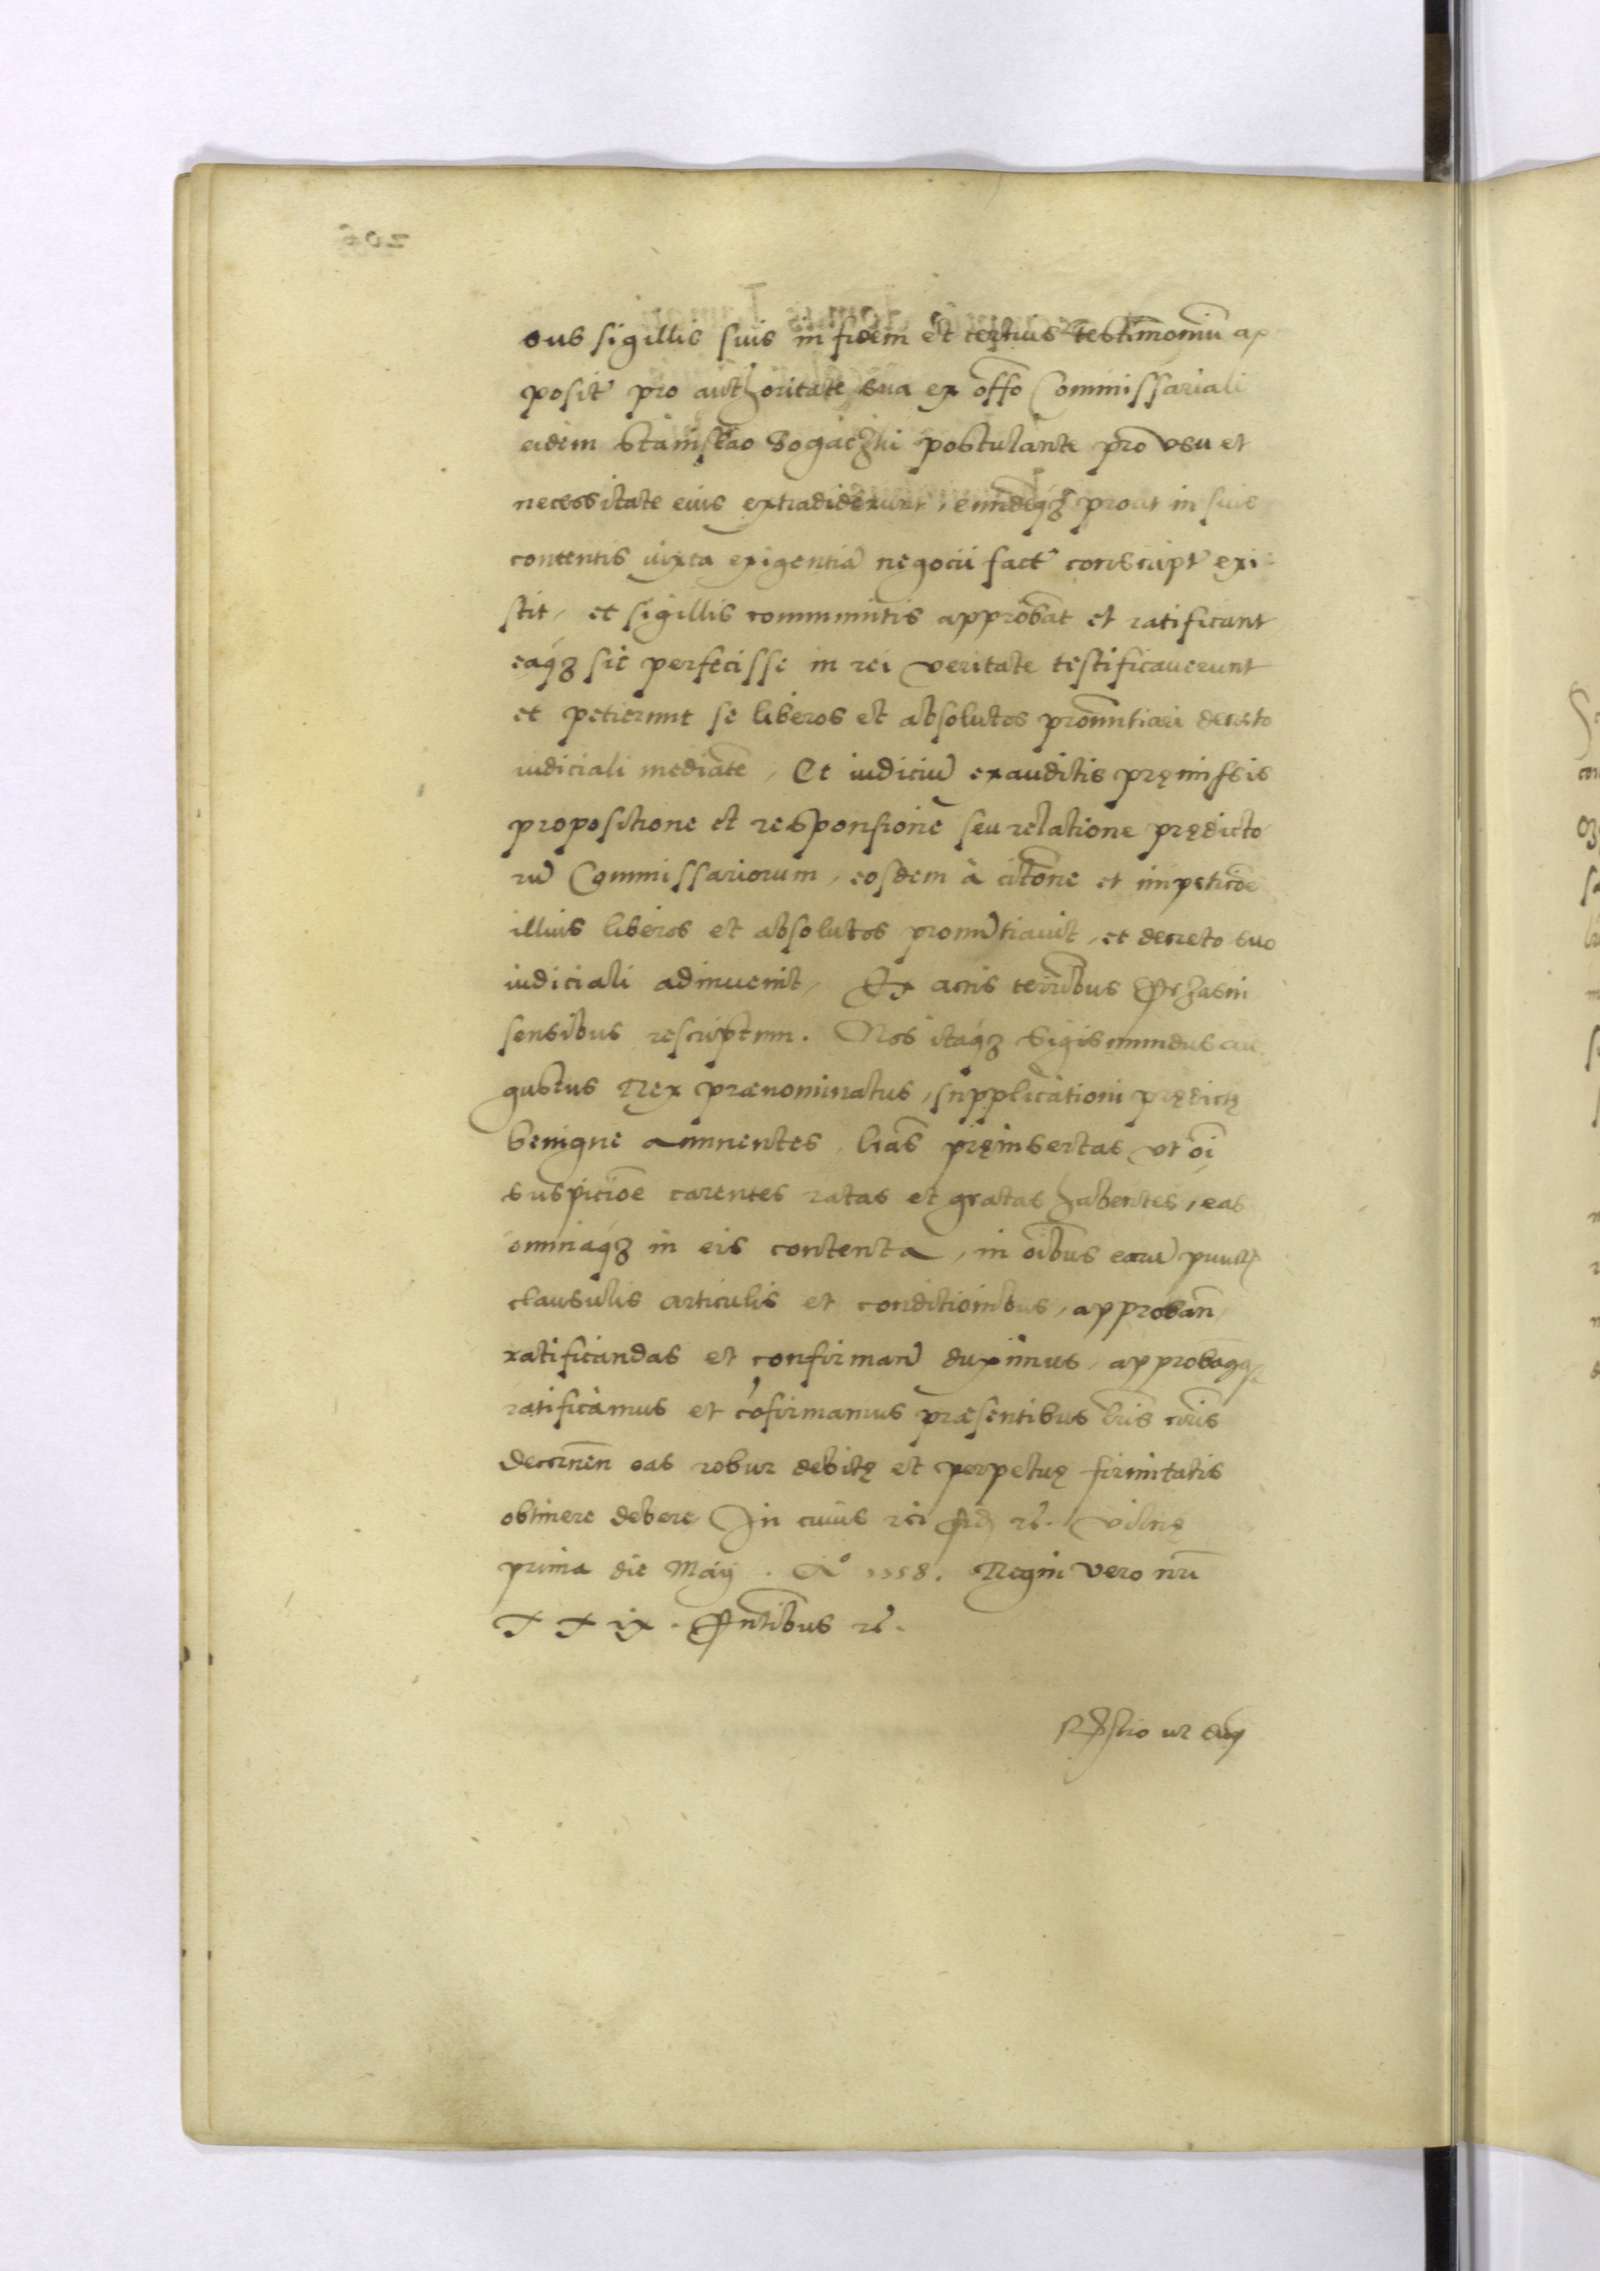 sub sigillis suis in fidem et certius testimoniũ ap
posit̃ pro authoritate sua ex offo Commissariali
eidem Stanislao Bogaczki postulante pro vsu et
necessitate eius extradiderunt, eundẽqʒ prout in suis
contentis iuxta exigentiã negocii fact̃ conscript̃ exi-
stit, et sigillis communitis approbãt et ratificant
eaqʒ sic perfecisse in rei veritate testificauerunt
et petierunt se liberos et absolutos pronũtiari decreto
iudiciali mediãte, Et iudiciũ exauditis pręmissis
propositione et responsione seu relatione prędicto
rũ Commissariorum, eosdem à citõne et impeticõe
illius liberos et absolutos pronũtiauit, et decreto suo
iudiciali adinuenit, Ex actis terrĩbus Przasni
sensibus rescriptum. Nos itaqʒ Sigismundus au-
gustus Rex prænominatus, supplicationi prędictę
benigne annuentes, lr̃as pręinsertas vt oĩ
suspiciõe carentes ratas et gratas habentes, eas
omniaqʒ in eis contenta, in oĩbus earũ punct
clausulis articulis et conditionibus, approbañ
ratificandas et confirmañ duximus, approbãqʒ
ratificamus et cõfirmamus præsentibus lr̃is nr̃is
decerneñ eas robur debitę et perpetuę firmitatis
obtinere debere In cuius rei fid̃ rc̃. Vilnę
prima die Maij. Aº 1558. Regni vero nr̃i
XXIX. Pñtibus rc̃.
Rełtio ut sup̃